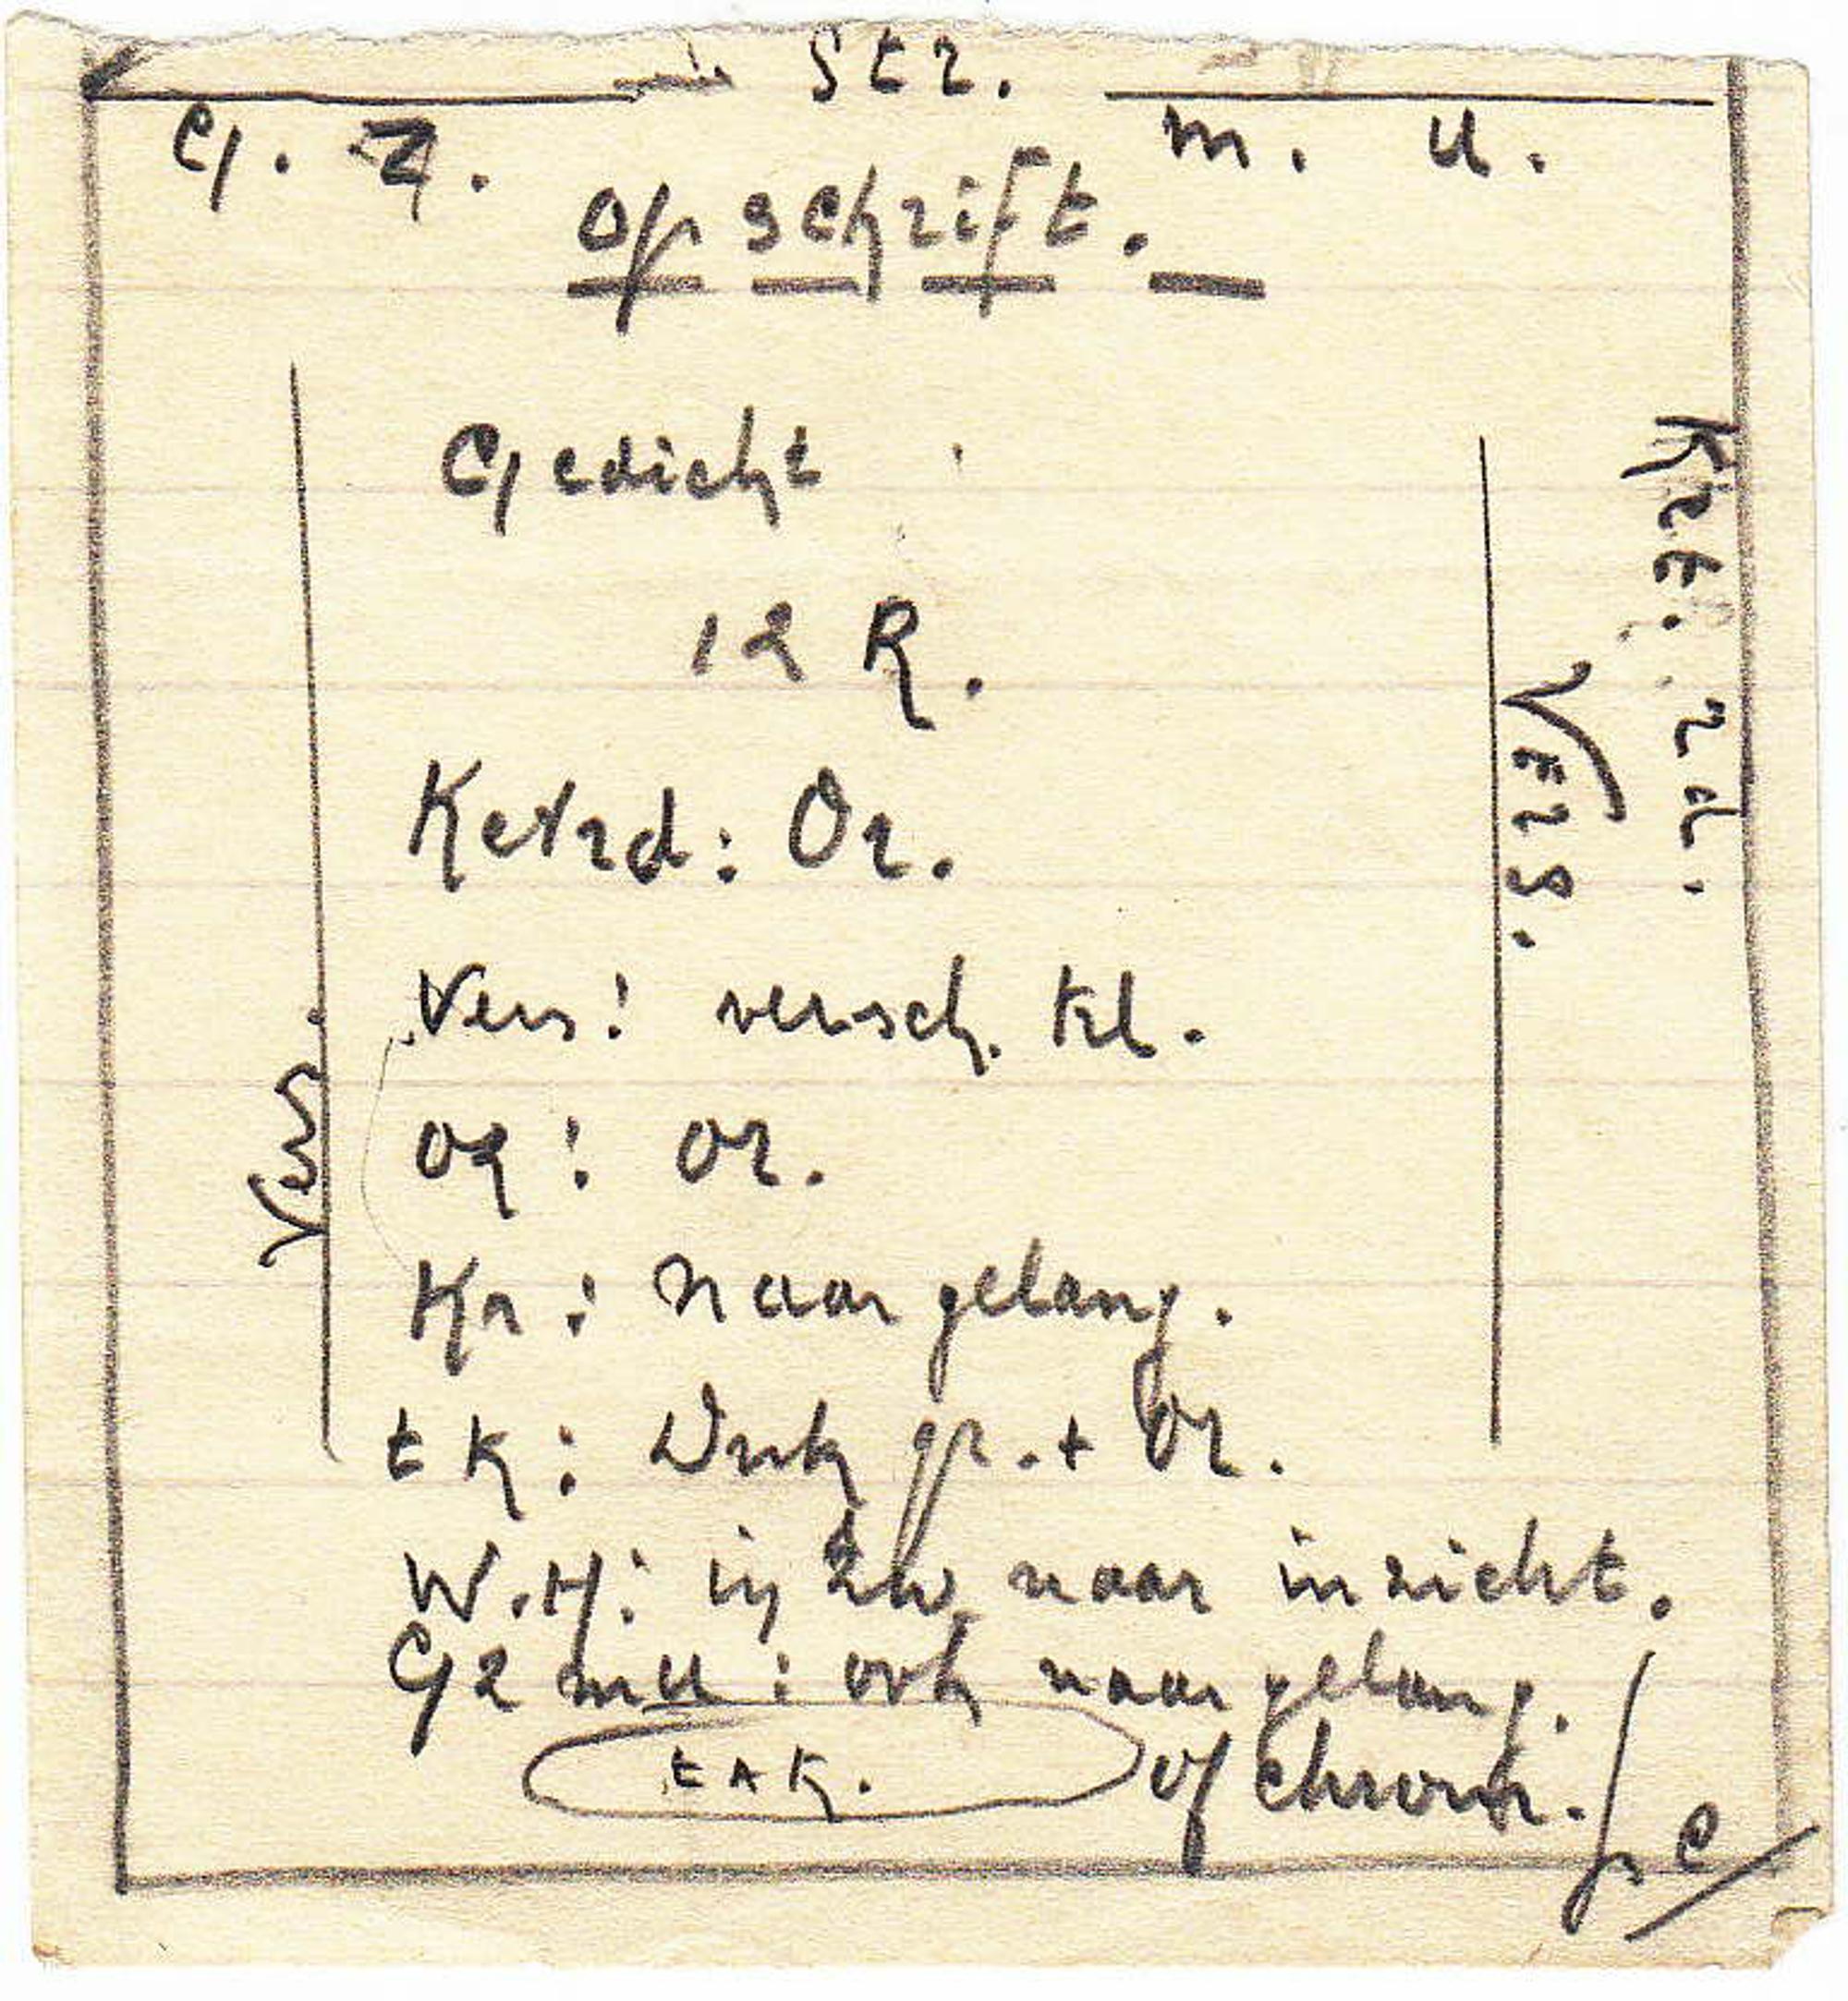 Str.
G. Z. m. u.
Opschrift.
Gedicht
12 R.
Ketrd: Or.
Vers: versch. kl.
Og: or.
Kr: naar gelang.
tk: Dnk gr. + Or.
W.H: in zw naar inzicht.
Gz mu: ook naar gelang.
tak. of chrom.
Vers.
Vers.
Krt. rd.